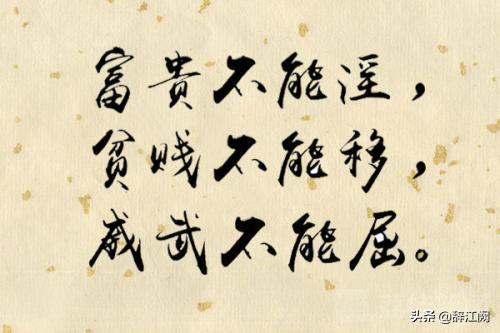 富贵不能淫，
贫贱不能移，
威武不能屈。
头条@辞江阔